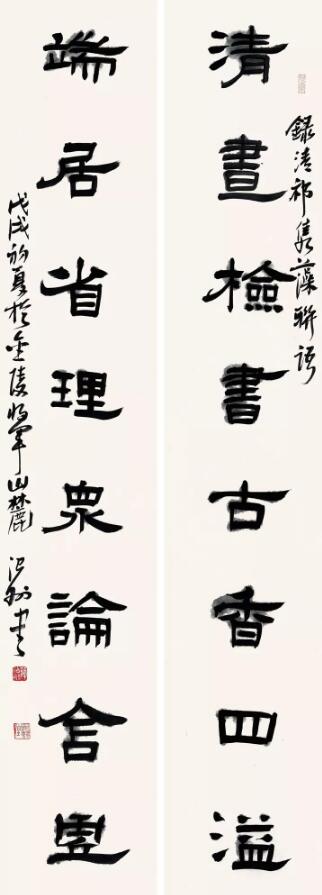 錄清祁雋藻聯語
清晝檢書古香四溢
端居省理眾論含盈
戊戌初夏於金陵將軍山麓 書